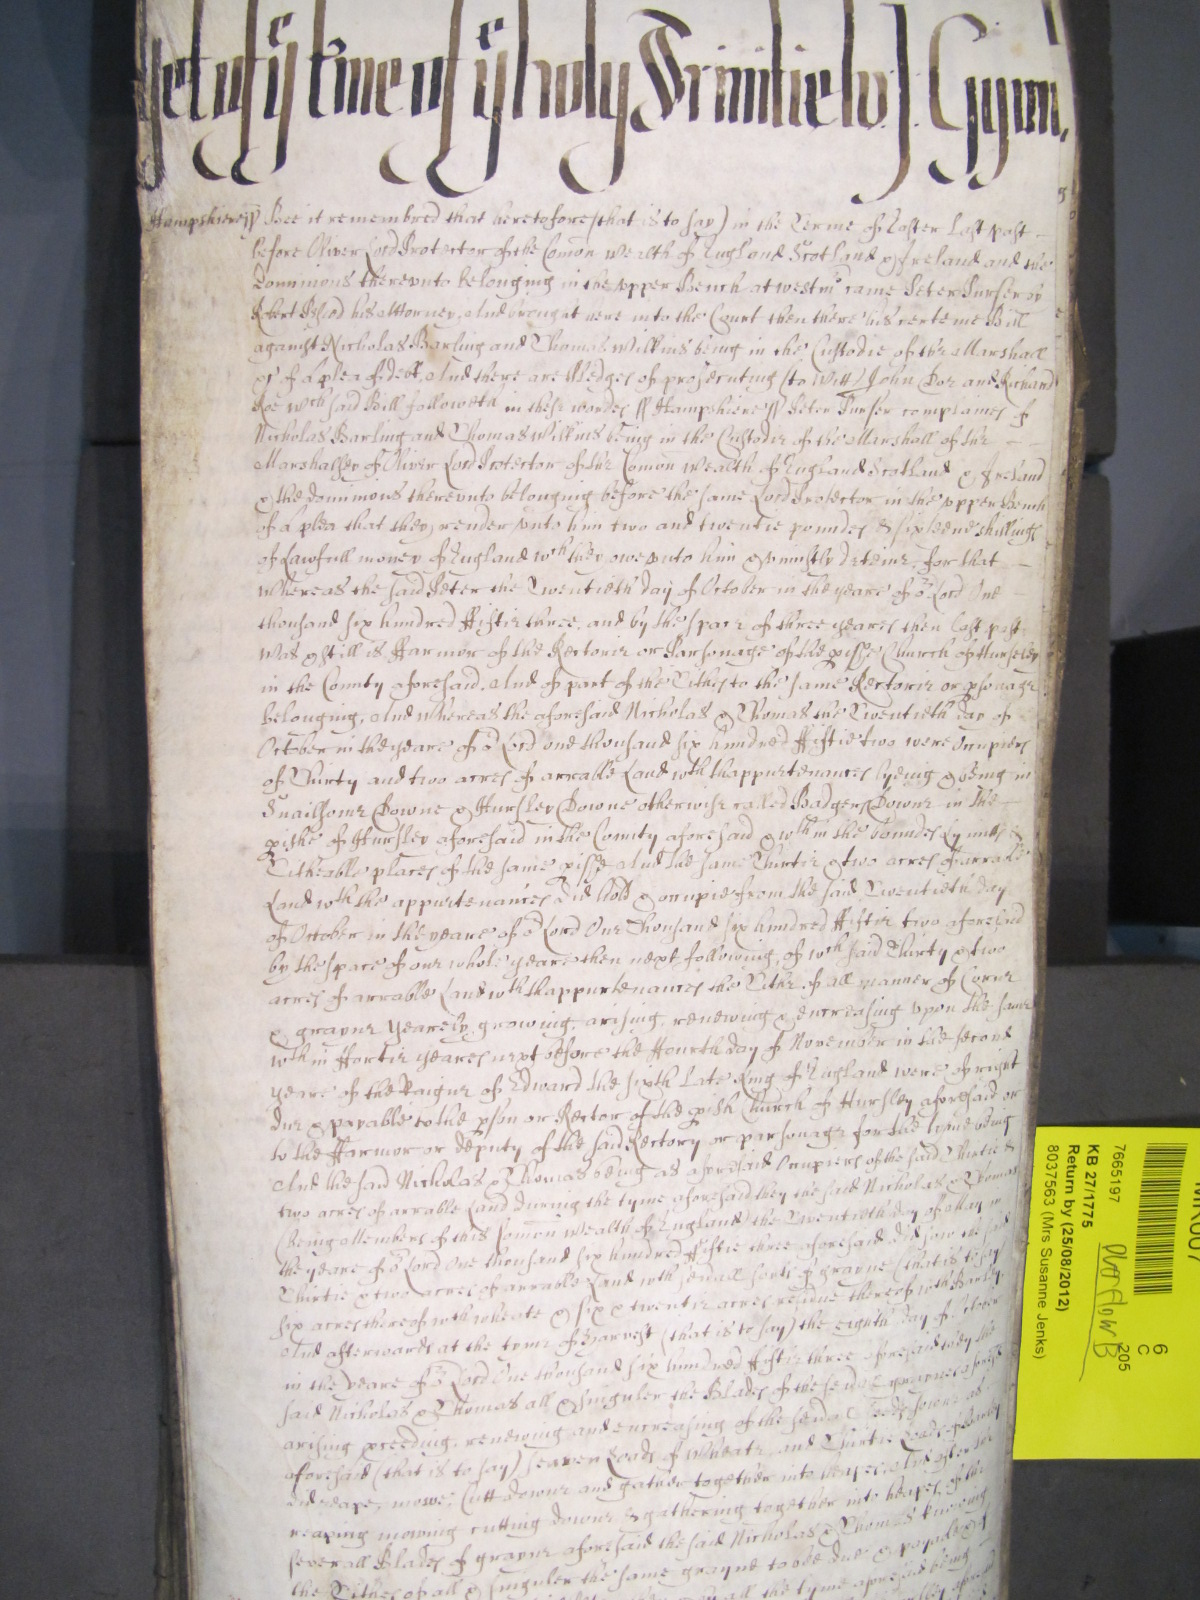 Yet of ye tme of ye holy Trinitie
Hampshiere ss Bee it remembred that heretofore (that is to say) in the Terme of Easter last past
before Oliver Lord Protector of the Comon wealth of England Scotland & Ireland and the
dominions therevnto belonging in the vpper Bench at westmr came Peter Purser by
Robert his Attorney, And brought here into the Court then there his certeine Bill
against Nicholas Barling and Thomas Wilkins being in the Custodie of the Marshall
&c of a plea of debt, And there are Pledges of prosecuting (to witt) John Doe and Richard
Roe wch said Bill followeth in these wordes ss Hampshiere ss Peter Purser complaines of
Nicholas Barling and Thomas Wilkins being in the Custodie of the Marshall of the
Marshalsey of Oliver Lord Protector of the Comon wealth of England Scotland & Ireland
& the dominions therevnto belonging before the same Lord Protector in the vpper Bench
of a plea that they render vnto him two and twentie poundes & sixteene shillings
of Lawfull money of England wch they owe vnto him & vniustly deteine, for that
Whereas the said Peter the Twentieth day of October in the yeare of or Lord One
thousand six hundred ffiftie three, and by the space of three yeares then last past
was & still is ffarmor of the Rectorie or Parsonage of the pishe Church of Hursley
in the County aforesaid, And of part of the Tithes to the same Rectorie or psonage
belonging, And whereas the aforesaid Nicholas & Thomas the Twentieth day of
October in the yeare of or Lord one thousand six hundred ffiftie two were Occupiers
of Thirty and two acres of arrable Land wth thappurtenances lyeing & being in
Snailhome Downe & Hursley Downe otherwise called Badgers Downe in the
pishe of Hursley aforesaid in the County aforesaid & wthin the boundes lymitts &
Titheable places of the same pishe And the same Thirtie & two acres of arrable
Land wth the appurtenances did hold & occupie from the said Twentieth day
of October in the yeare of or Lord One Thousand six hundred ffiftie two aforesaid
by the space of one whole yeare then next following, of wch said Thirty & two
acres of arrable Land wth thappurtenances the Tithe of all manner of Corne
& grayne yearely growing, arising, renewing & encreasing vpon the same
wthin ffortie yeares next before the ffourth day of November in the second
yeare of the Raigne of Edward the sixth late King of England were of right
due & payable to the pson or Rector of the pish Church of Hursley aforesaid or
to the ffarmor or deputy of the said Rectory or parsonage for the tyme being
And the said Nicholas & Thomas being as aforesaid Occupiers of the said Thirtie &
two acres of arrable Land during the tyme aforesaid they the said Nicholas & Thomas
(being Members of this Comon wealth of England) the Twentieth day of May in
the yeare of or Lord One thousand six hundred ffiftie three aforesaid did sow the said
Thirtie & two acres of arrable Land wth seuall sorts of grayne (that is to say)
six acres thereof wth wheate & six & twentie acres residue thereof wth Barley
And afterwards at the tyme of Harvest (that is to say) the eighth day of October
in the yeare of or Lord One thousand six hundred ffiftie three aforesaid they the
said Nicholas & Thomas all & singuler the Blades of the seuall graynes aforesd
arising, pceeding, renewing and encreasing of the seuall seeds sowne as
aforesaid (that is to say) seaven Loads of wheate, and Thirtie Loads of Barley
did reape, mowe, Cutt downe and gather together into heapes And after the
reaping mowing cutting downe & gathering together into heapes, of the
severall Blades of grayne aforesaid the said Nicholas & Thomas knowing
the Tithes of all & singuler the same grayne to be due & payable
all the tyme aforesaid being
7665197
KB 27/1775
Return by (25/08/2012)
8037563 (Mrs Susanne Jenks)
6
C
205